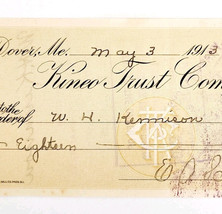 Dover, Me. May 3 1913
Kineo Trust Com
to the
der of W. H. Kennison
Eighteen